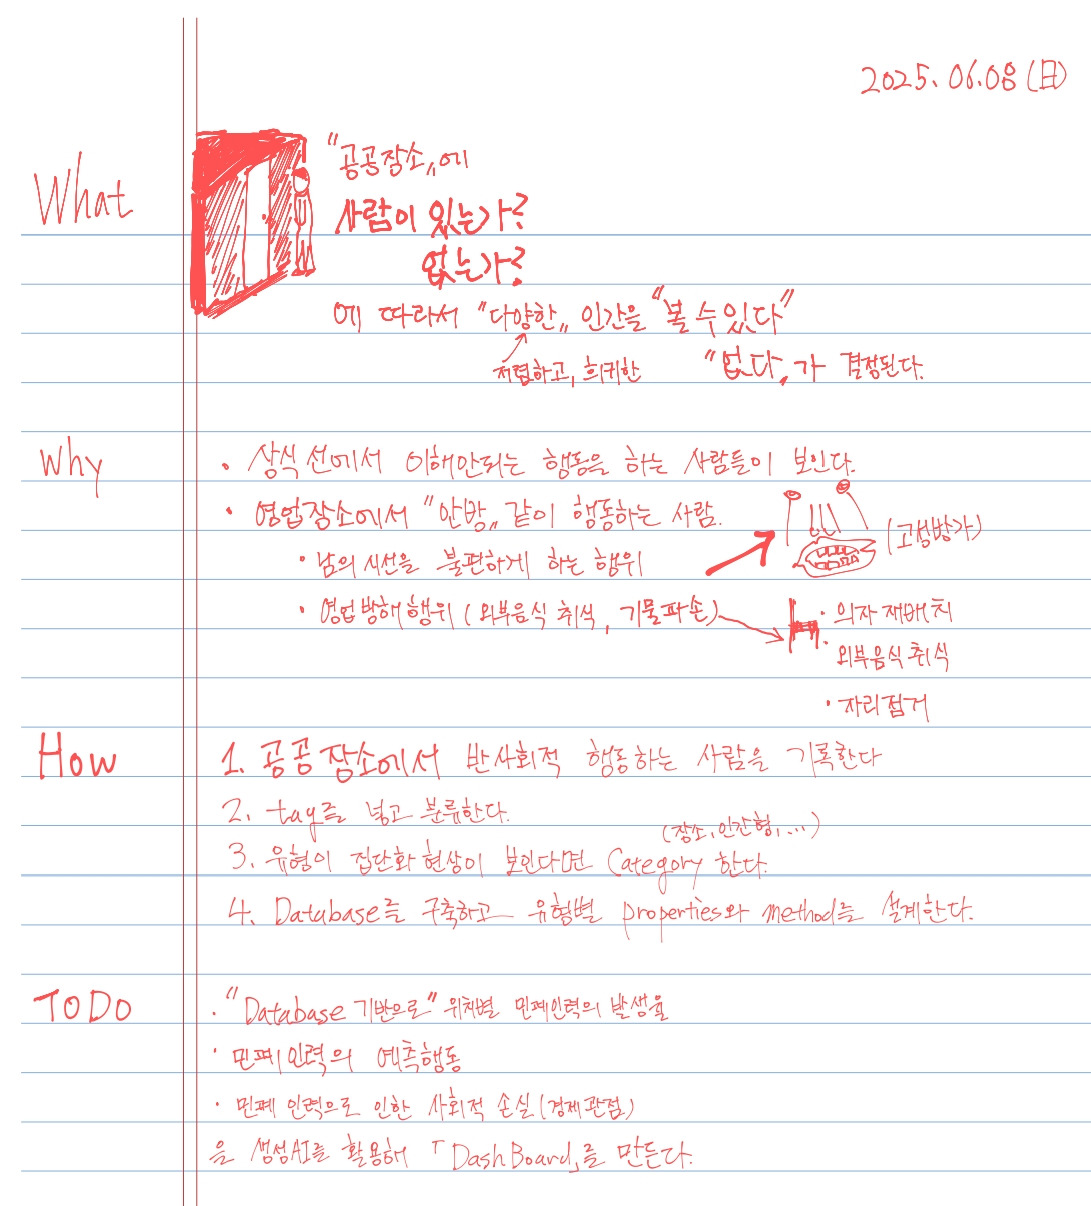 2025.06.08(日)
What
"공공장소„에
사람이 있는가?
없는가?
에 따라서 "다양한„ 인간을 "볼 수 있다"
저렴하고, 희귀한
"없다„가 결정된다.
Why
· 상식 선에서 이해안되는 행동을 하는 사람들이 보인다.
· 영업장소에서 "안방„같이 행동하는 사람.
(고성방가)
· 남의 시선을 불편하게 하는 행위
· 영업방해행위(외부음식 취식, 기물파손)
· 의자 재배치
· 외부음식 취식
· 자리점거
How
1. 공공장소에서 반사회적 행동하는 사람을 기록한다
2. tag를 넣고 분류한다.
(장소, 인간형, ...)
3. 유형이 집단화 현상이 보인다면 Category 한다.
4. Database를 구축하고 유형별 properties와 method를 설계한다.
ToDo
· "Database 기반으로" 위치별 민폐인력의 발생율
· 민폐인력의 예측행동
· 민폐 인력으로 인한 사회적 손실(경제관점)
을 생성AI를 활용해 「DashBoard」를 만든다.